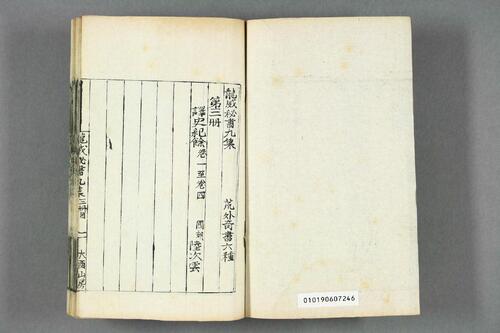 龍威秘書九集
荒外奇書六種
第二冊
譯史紀餘 卷一至卷四
國朝 陸次雲
龍威秘書九集
一
大酉山房
010190607246